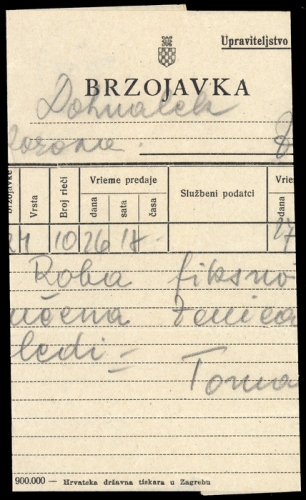 Upraviteljstvo
BRZOJAVKA
Dohnalek
Vrsta
Broj rieči
Vrieme predaje
dana
sata
časa
Službeni podatci
10 26 17 –
27
Roba fiksno
učena Zenica
ledi –
Toma
900.000 — Hrvatska državna tiskara u Zagrebu